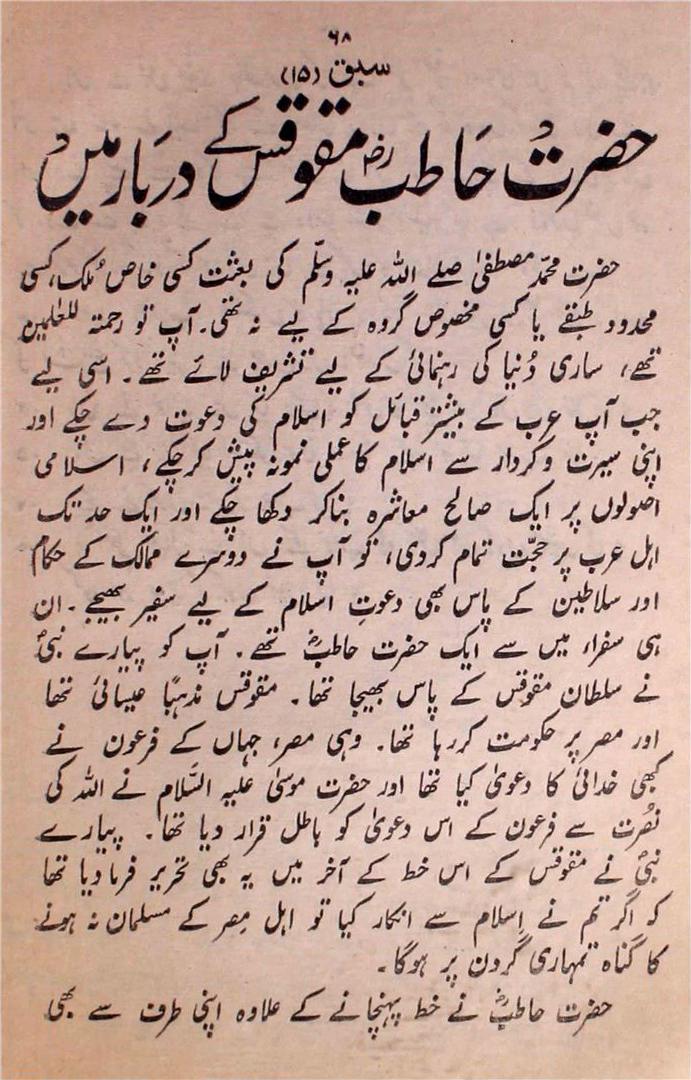 ۶۸
سبق (۱۵)
حضرت حاطبؓ مقوقس کے دربار میں
حضرت محمّد مصطفیٰ صلے اللہ علیہ وسلّم کی بعثت کسی خاص مُلک، کسی
محدود طبقے یا کسی مخصوص گروہ کے لیے نہ تھی۔ آپ تو رحمتہ للعٰلمین
تھے، ساری دُنیا کی رہنمائی کے لیے تشریف لائے تھے۔ اسی لیے
جب آپ عرب کے بیشتر قبائل کو اسلام کی دعوت دے چکے اور
اپنی سیرت وکردار سے اسلام کا عملی نمونہ پیش کرچکے، اسلامی
اصولوں پر ایک صالح معاشرہ بناکر دکھا چکے اور ایک حد تک
اہل عرب پر حجّت تمام کردی، تو آپ نے دوسرے ممالک کے حکام
اور سلاطین کے پاس بھی دعوتِ اسلام کے لیے سفیر بھیجے۔ ان
ہی سفراء میں سے ایک حضرت حاطبؓ تھے۔ آپ کو پیارے نبیؐ
نے سلطان مقوقس کے پاس بھیجا تھا۔ مقوقس مذہبًا عیسائی تھا
اور مصر پر حکومت کررہا تھا۔ وہی مصر، جہاں کے فرعون نے
کبھی خدائی کا دعویٰ کیا تھا اور حضرت موسیٰ علیہ السَّلام نے اللہ کی
نصُرت سے فرعون کے اس دعویٰ کو باطل قرار دیا تھا۔ پیارے
نبیؐ نے مقوقس کے اس خط کے آخر میں یہ بھی تحریر فرمادیا تھا
کہ اگر تم نے اِسلام سے انکار کیا تو اہل مِصر کے مسلمان نہ ہونے
کا گناہ تمہاری گردن پر ہوگا۔
حضرت حاطبؓ نے خط پہنچانے کے علاوہ اپنی طرف سے بھی